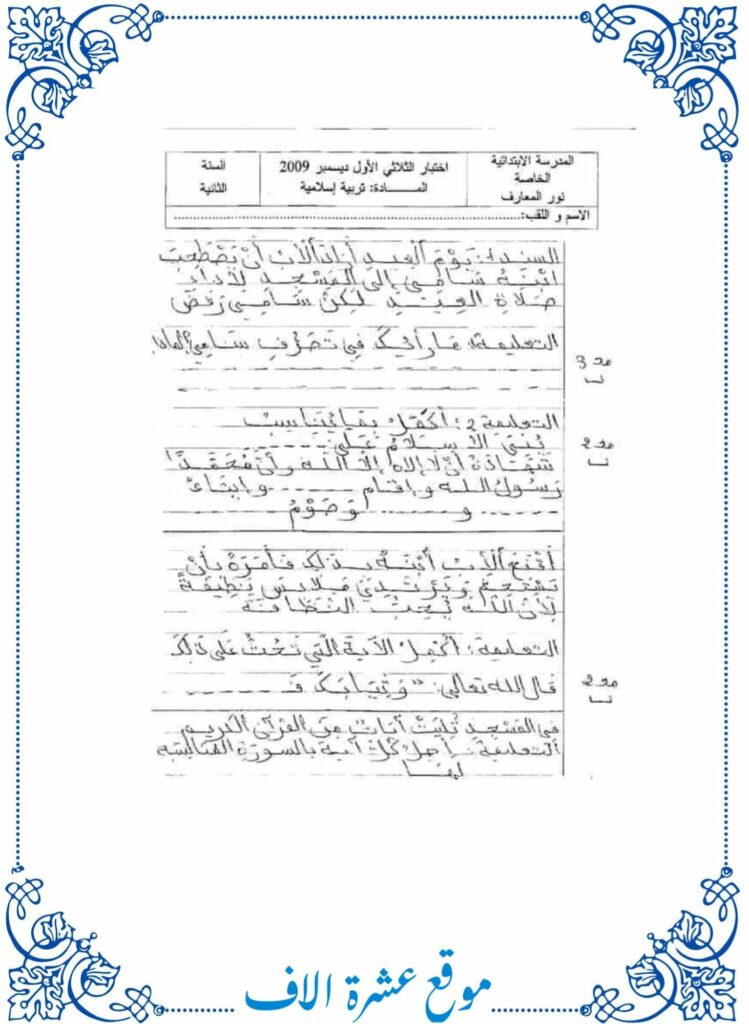 المدرسة الإبتدائية الخاصة نور المعارف
اختبار الثلاثي الأول ديسمبر 2009
المــــــادة: تربية إسلامية
السنة الثانية
الاسم و اللقب:
السند 1: يَوْمَ العِيدِ أَرَادَ الأَبُ أَنْ يَصْطَحِبَ
ابْنَهُ سَامِي إِلَى المَسْجِدِ لِأَدَاءِ
صَلَاةِ العِيدِ لَكِنَّ سَامِي رَفَضَ
التعليمة 1: مَا رَأْيُكَ فِي تَصَرُّفِ سَامِي؟ لماذا؟
مع 3
التعليمة 2: أُكْمِلُ بِمَا يُنَاسِبُ
بُنِيَ الإِسْلَامُ عَلَى: ------
مع 2
شَهَادَةُ أَنْ لَا إِلَاهَ إِلَّا اللَّه وَأَنَّ مُحَمَّدًا
رَسُولُ اللَّه وَ إِقَام ------ وَ إِيتَاءُ
------ و ------ وَصَوْمُ
أَقْنَعَ الأَبُ ابْنَهُ بِذَلِكَ فَأَمَرَهُ بِأَنْ
يَسْتَحِمَّ وَ يَرْتَدِيَ مَلَابِسَ نَظِيفَةً
لِأَنَّ اللَّه يُحِبُّ النَّظَافَةَ
التعليمة: أُكْمِلُ الآيَةَ الَّتِي تَحُثُّ عَلَى ذَلِكَ
قَالَ اللَّه تَعَالَى: "وَثِيَابَكَ فَ ------
مع 2
فِي المَسْجِدِ تُلِيَتْ آيَاتٌ مِنَ القُرْآنِ الكَرِيمِ
التعليمة: أَصِلُ كُلَّ آيَةٍ بِالسُّورَةِ المُنَاسِبَةِ
لَهَا
موقع عشرة الاف